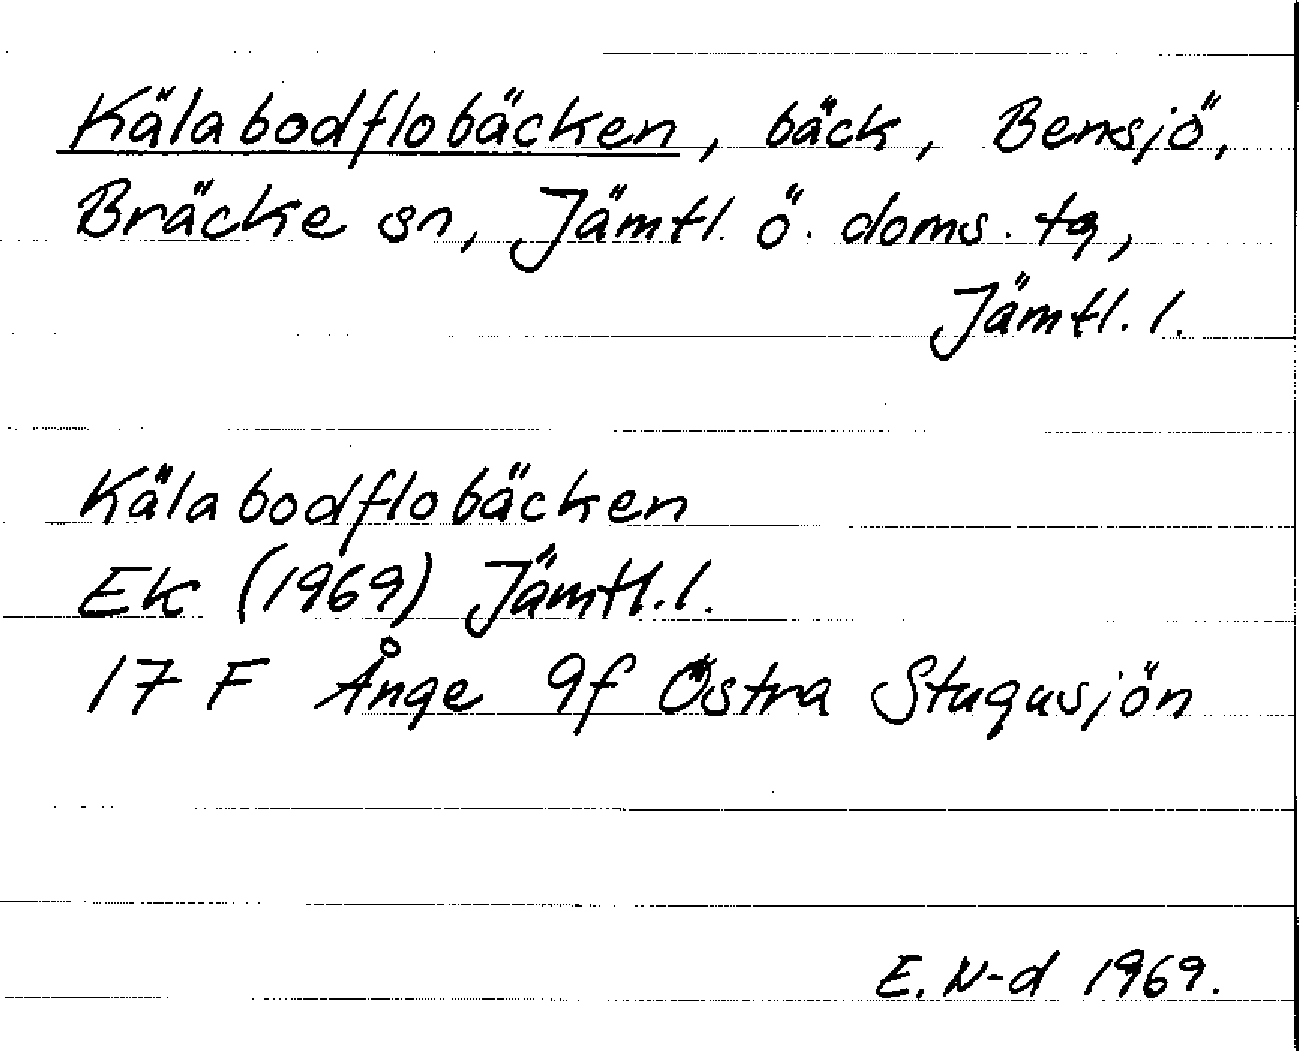 Kälabodflobäcken, bäck, Bensjö,
Bräcke sn, Jämtl. ö. doms. tg,
Jämtl. l.
Kälabodflobäcken
Ek (1969) Jämtl. l.
17 F Ånge 9f Östra Stugusjön
E. N-d 1969.